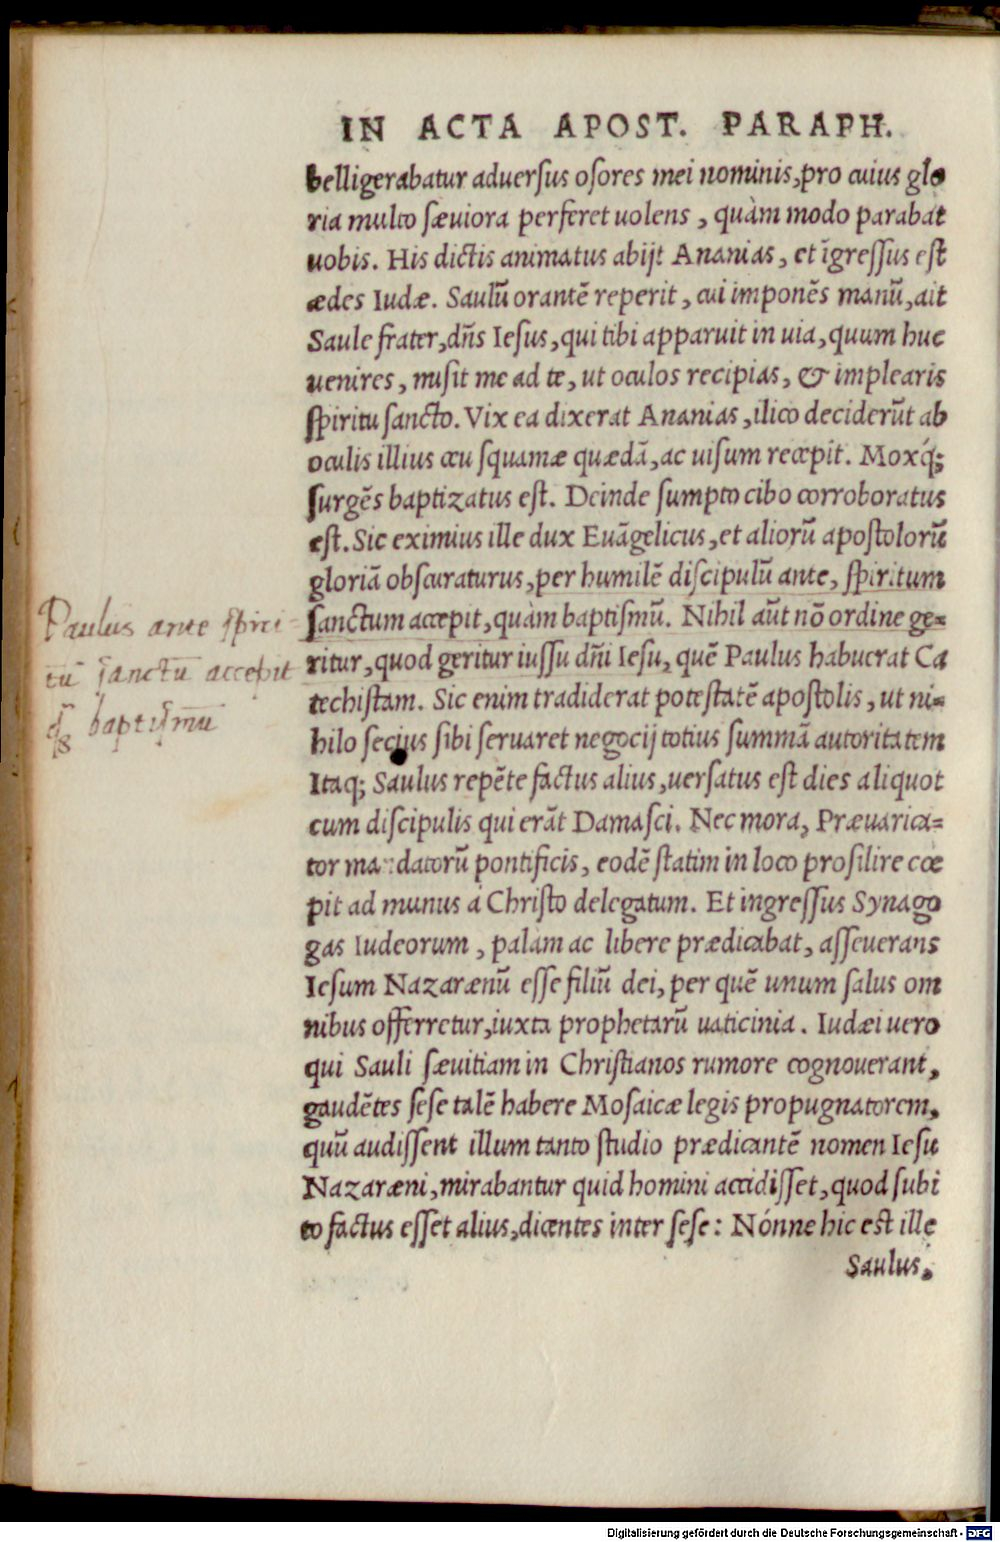 IN ACTA APOST. PARAPH.
belligerabatur aduersus osores mei nominis, pro cuius glo
ria multo sæuiora perferet uolens, quàm modo parabat
uobis. His dictis animatus abijt Ananias, et īgressus est
ædes Iudæ. Saulū orantē reperit, cui imponēs manū, ait
Saule frater, dn̄s Iesus, qui tibi apparuit in uia, quum huc
uenires, misit me ad te, ut oculos recipias, & implearis
spiritu sancto. Vix ea dixerat Ananias, ilico deciderūt ab
oculis illius ceu squamæ quædā, ac uisum recepit. Moxq́;
surgēs baptizatus est. Deinde sumpto cibo corroboratus
est. Sic eximius ille dux Euāgelicus, et aliorū apostolorū
gloriā obscuraturus, per humilē discipulū ante, spiritum
sanctum accepit, quàm baptismū. Nihil aūt nō ordine ge=
ritur, quod geritur iussu dn̄i Iesu, quē Paulus habuerat Ca
techistam. Sic enim tradiderat potestatē apostolis, ut ni=
hilo secius sibi seruaret negocij totius summā autoritatem
Itaq; Saulus repēte factus alius, uersatus est dies aliquot
cum discipulis qui erāt Damasci. Nec mora, Præuarica=
tor mandatorū pontificis, eodē statim in loco prosilire coe
pit ad munus á Christo delegatum. Et ingressus Synago
gas Iudeorum, palam ac libere prædicabat, asseuerans
Iesum Nazarænū esse filiū dei, per quē unum salus om
nibus offerretur, iuxta prophetarū uaticinia. Iudæi uero
qui Sauli sæuitiam in Christianos rumore cognouerant,
gaudētes sese talē habere Mosaicæ legis propugnatorem,
quū audissent illum tanto studio prædicantē nomen Iesu
Nazaræni, mirabantur quid homini accidisset, quod subi
to factus esset alius, dicentes inter sese: Nónne hic est ille
Saulus,
Paulus ante spiri-
tū sanctū accepit
q̄ baptismū
Digitalisierung gefördert durch die Deutsche Forschungsgemeinschaft - DFG